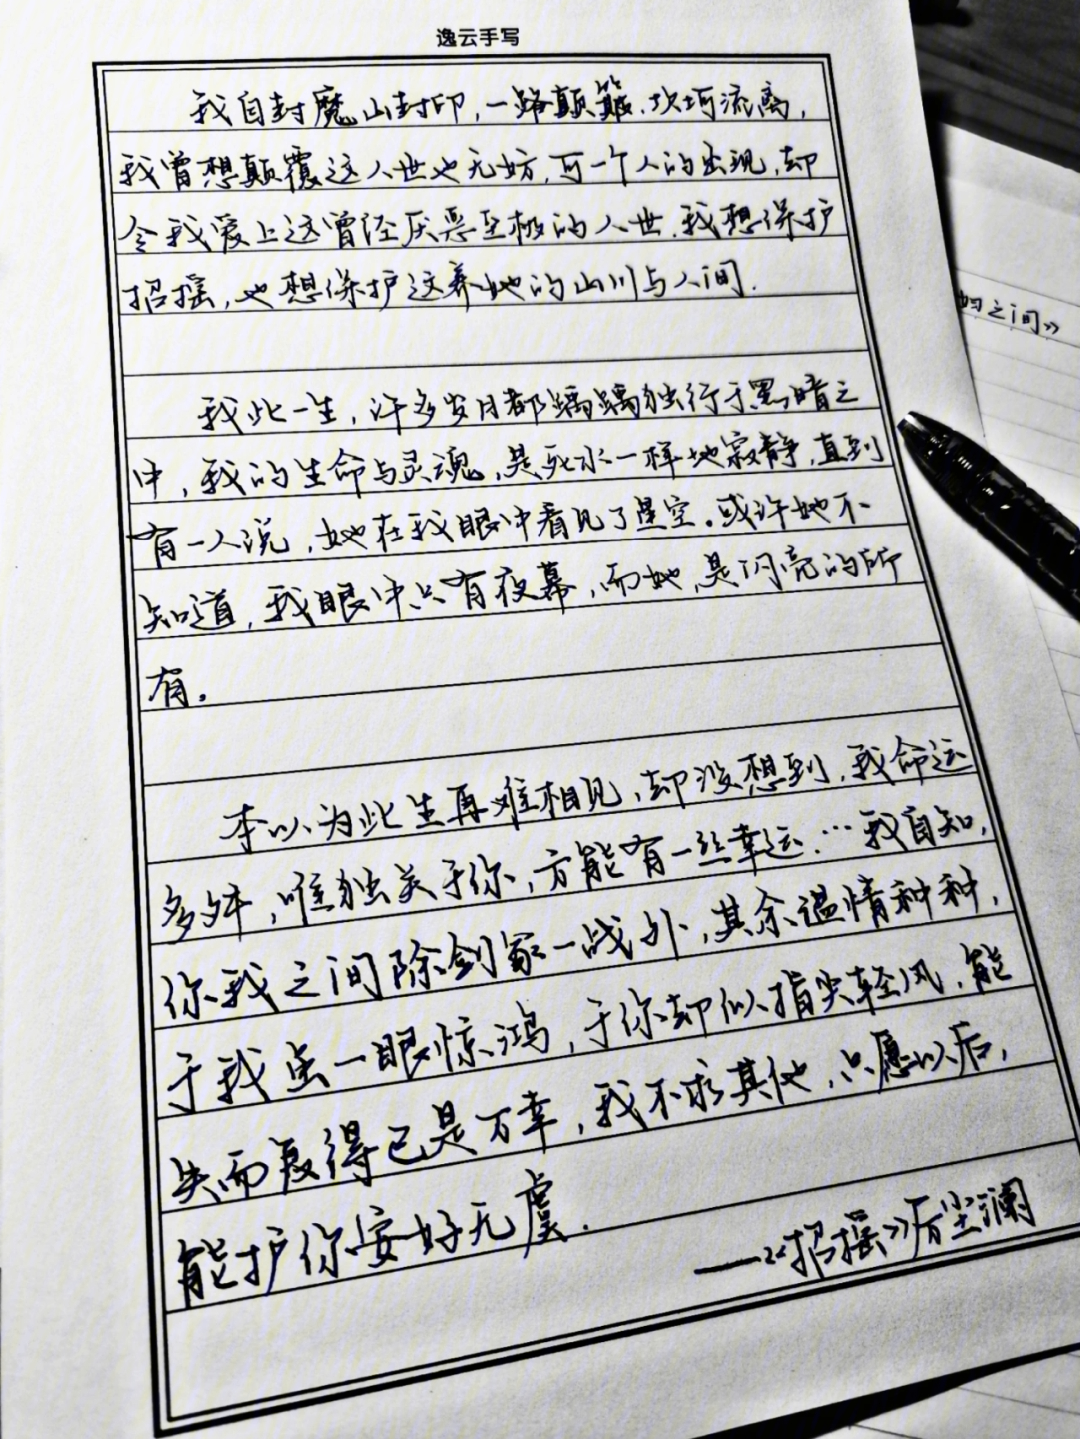 逸云手写
我自封魔山封印，一路颠簸，坎坷流离，
我曾想颠覆这人世也无妨，可一个人的出现，却
令我爱上这曾经厌恶至极的人世，我想保护
招摇，也想保护这养她的山川与人间.
之间》
我此一生，许多岁月都踽踽独行于黑暗之
中，我的生命与灵魂，是死水一样地寂静，直到
有一人说，她在我眼中看见了星空。或许她不
知道，我眼中只有夜幕，而她，是闪亮的所
有。
本以为此生再难相见，却没想到，我命运
多舛，唯独关于你，方能有一丝幸运…我自知，
你我之间除剑冢一战外，其余温情种种，
于我虽一眼惊鸿，于你却似指尖轻风，能
失而复得已是万幸，我不求其他，只愿以后，
能护你安好无虞.
——《招摇》厉尘澜